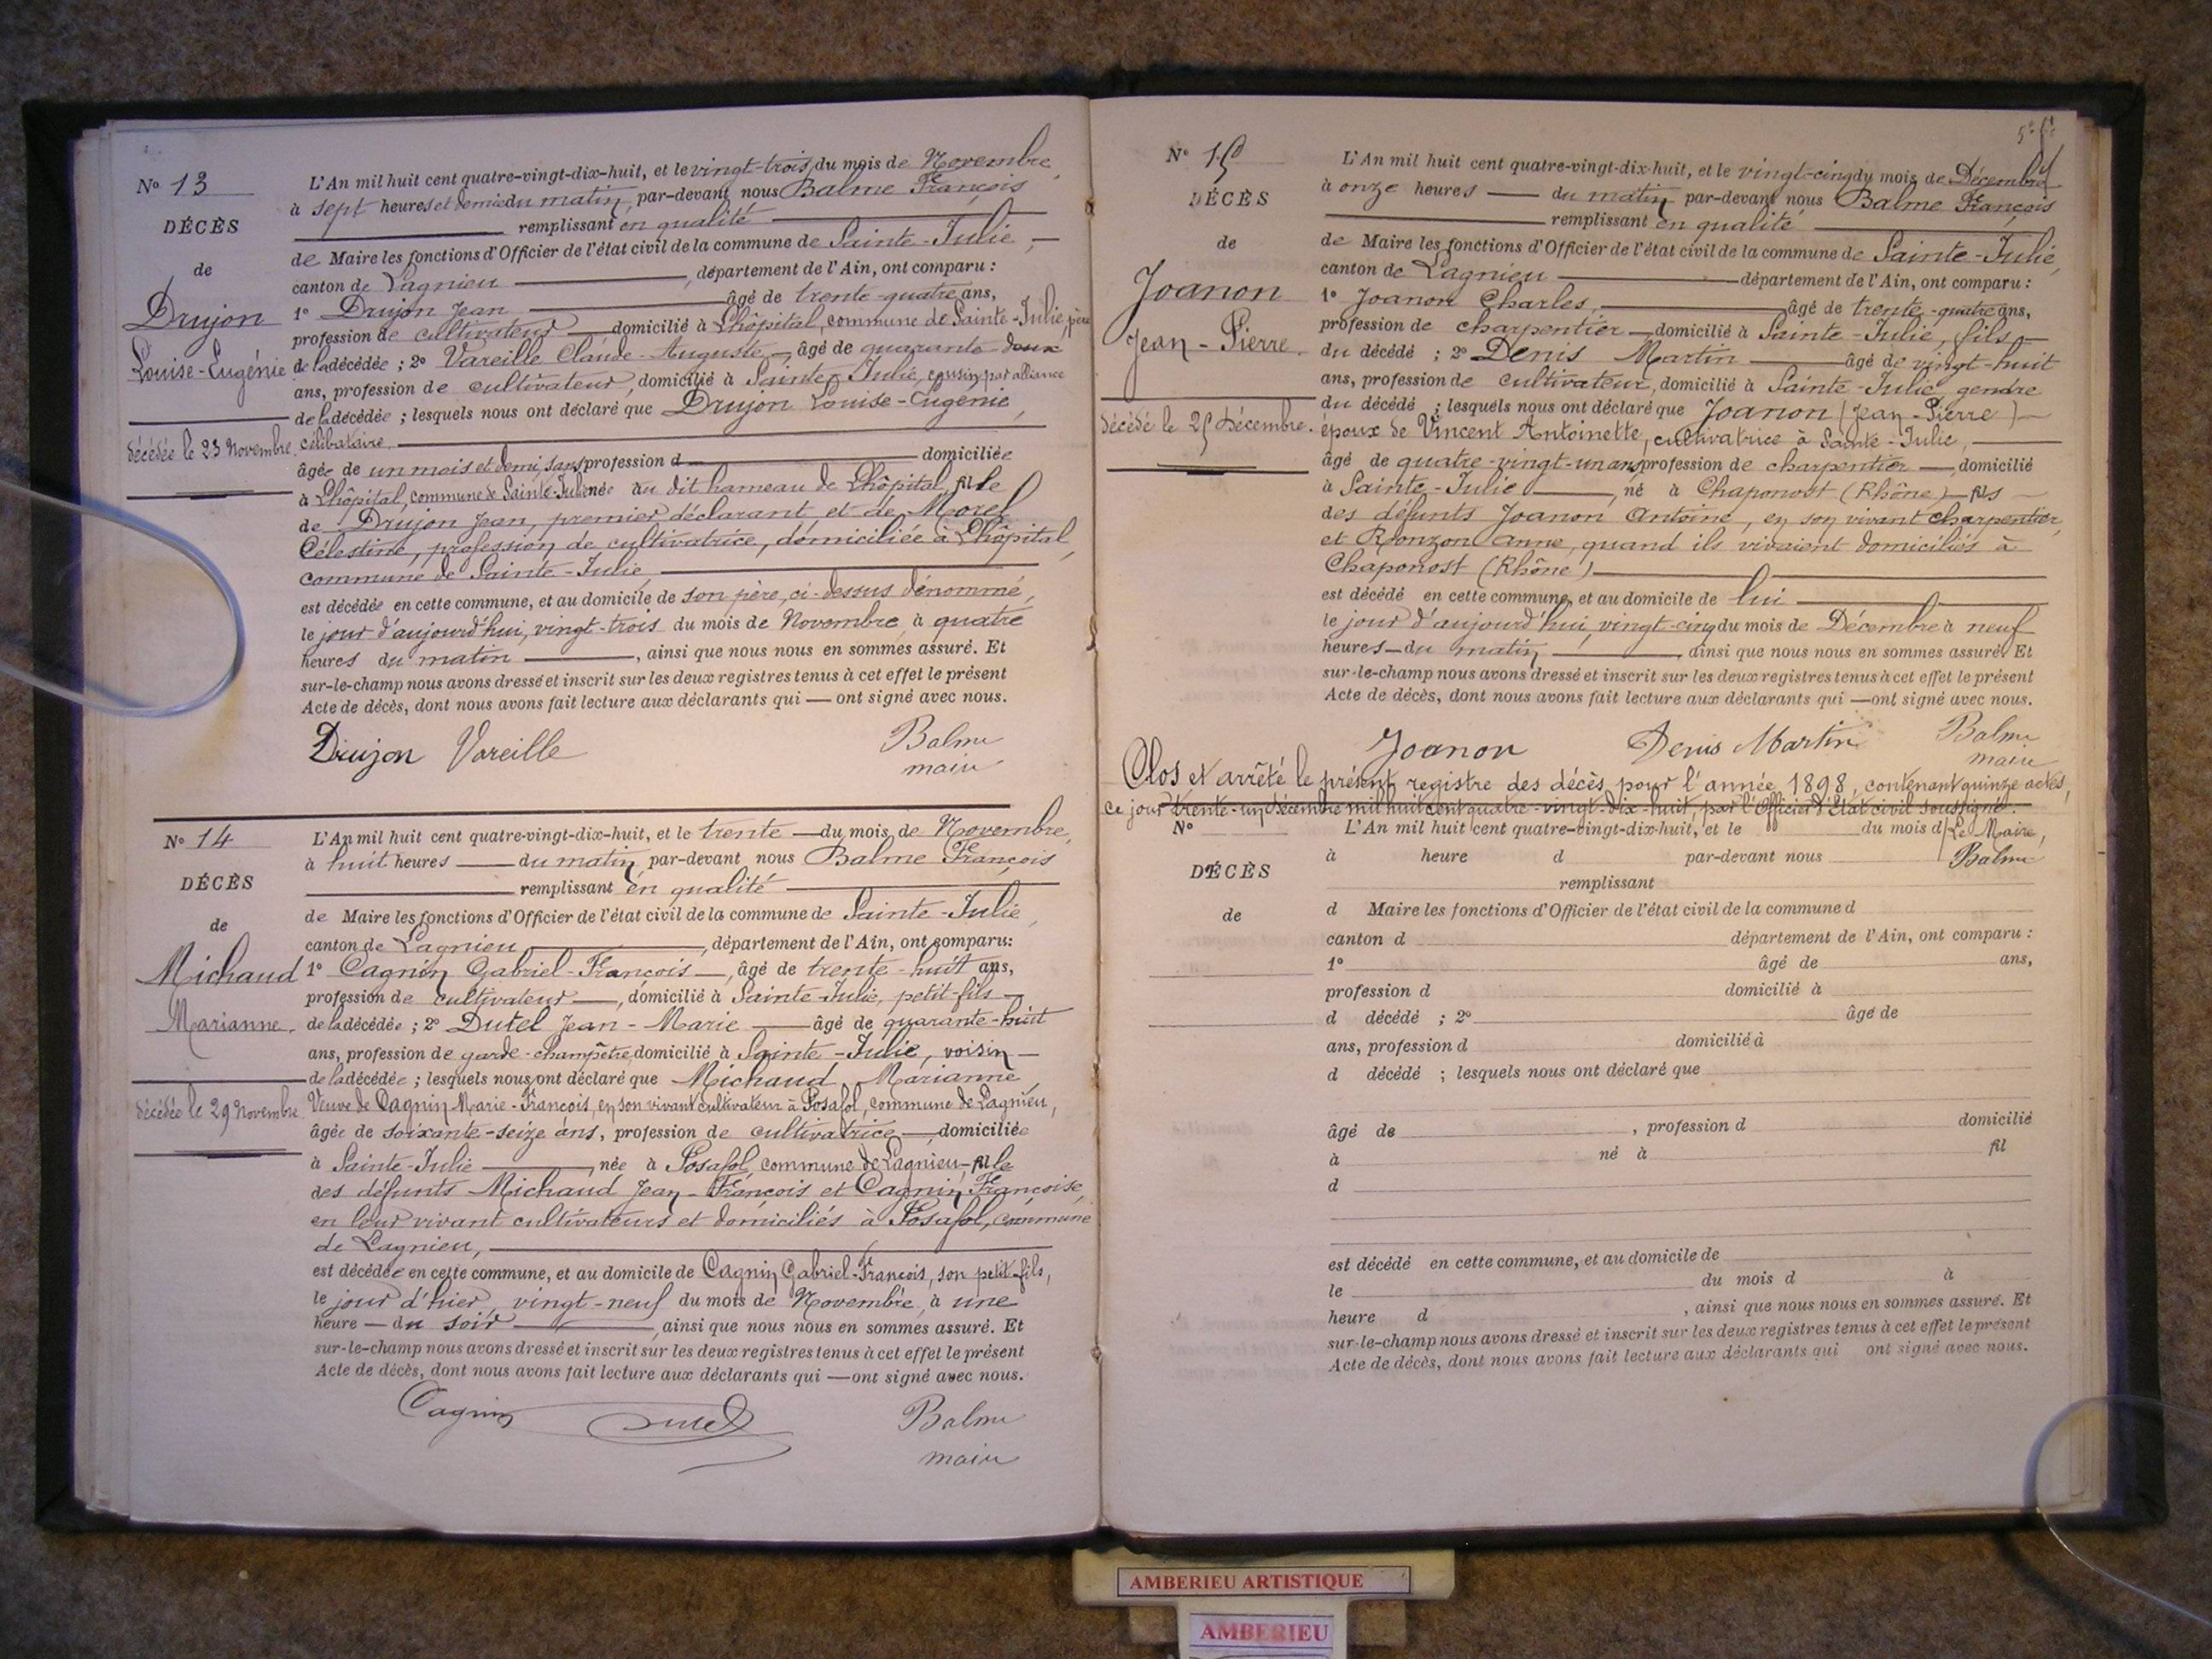 N° 13
DÉCÈS
de
Drujon
Louise-Eugénie
décédée le 23 Novembre.
L'An mil huit cent quatre-vingt-dix-huit, et le vingt-trois du mois de Novembre,
à sept heures et demie du matin, par-devant nous Balme François
remplissant en qualité
de Maire les fonctions d'Officier de l'état civil de la commune de Sainte-Julie,
canton de Lagnieu, département de l'Ain, ont comparu :
1° Drujon Jean âgé de trente-quatre ans,
profession de cultivateur domicilié à Lhôpital, commune de Sainte-Julie, père
de la décédée ; 2° Vareille Claude-Auguste, âgé de quarante-deux
ans, profession de cultivateur, domicilié à Sainte-Julie, cousin par alliance
de la décédée ; lesquels nous ont déclaré que Drujon Louise-Eugénie,
célibataire
âgée de un mois et demi, sans profession d domiciliée
à Lhôpital, commune de Sainte-Julie née au dit hameau de Lhôpital, fille
de Drujon Jean, premier déclarant et de Morel
Célestine, profession de cultivatrice, domiciliée à Lhôpital,
commune de Sainte-Julie,
est décédée en cette commune, et au domicile de son père, ci-dessus dénommé,
le jour d'aujourd'hui, vingt-trois du mois de Novembre, à quatre
heures du matin, ainsi que nous nous en sommes assuré. Et
sur-le-champ nous avons dressé et inscrit sur les deux registres tenus à cet effet le présent
Acte de décès, dont nous avons fait lecture aux déclarants qui — ont signé avec nous.
Drujon Vareille Balme
maire
N° 14
DÉCÈS
de
Michaud
Marianne.
décédée le 29 Novembre.
L'An mil huit cent quatre-vingt-dix-huit, et le trente — du mois de Novembre,
à huit heures — du matin par-devant nous Balme François
remplissant en qualité
de Maire les fonctions d'Officier de l'état civil de la commune de Sainte-Julie,
canton de Lagnieu, département de l'Ain, ont comparu :
1° Cagnin Gabriel-François —, âgé de trente-huit ans,
profession de cultivateur —, domicilié à Sainte-Julie, petit-fils —
de la décédée ; 2° Dutel Jean-Marie — âgé de quarante-huit
ans, profession de garde-champêtre, domicilié à Sainte-Julie, voisin —
de la décédée ; lesquels nous ont déclaré que Michaud Marianne,
Veuve de Cagnin Marie-François, en son vivant cultivateur à Posafol, commune de Lagnieu,
âgée de soixante-seize ans, profession de cultivatrice —, domiciliée
à Sainte-Julie —, née à Posafol, commune de Lagnieu, fille
des défunts Michaud Jean-François et Cagnin Françoise,
en leur vivant cultivateurs et domiciliés à Posafol, commune
de Lagnieu,
est décédée en cette commune, et au domicile de Cagnin Gabriel-François, son petit-fils,
le jour d'hier, vingt-neuf du mois de Novembre, à une
heure — du soir —, ainsi que nous nous en sommes assuré. Et
sur-le-champ nous avons dressé et inscrit sur les deux registres tenus à cet effet le présent
Acte de décès, dont nous avons fait lecture aux déclarants qui — ont signé avec nous.
Cagnin Dutel Balme
maire
N° 15
DÉCÈS
de
Joanon
Jean-Pierre.
décédé le 25 Décembre.
L'An mil huit cent quatre-vingt-dix-huit, et le vingt-cinq du mois de Décembre
à onze heures — du matin par-devant nous Balme François
remplissant en qualité
de Maire les fonctions d'Officier de l'état civil de la commune de Sainte-Julie,
canton de Lagnieu — département de l'Ain, ont comparu :
1° Joanon Charles, — âgé de trente-quatre ans,
profession de charpentier — domicilié à Sainte-Julie, fils —
du décédé ; 2° Denis Martin — âgé de vingt-huit
ans, profession de cultivateur, domicilié à Sainte-Julie gendre
du décédé ; lesquels nous ont déclaré que Joanon (Jean-Pierre) —
époux de Vincent Antoinette, cultivatrice à Sainte-Julie, —
âgé de quatre-vingt-un ans, profession de charpentier —, domicilié
à Sainte-Julie —, né à Chaponost (Rhône) — fils —
des défunts Joanon Antoine, en son vivant charpentier,
et Ronzon Anne, quand ils vivaient domiciliés à
Chaponost (Rhône)
est décédé en cette commune, et au domicile de lui
le jour d'aujourd'hui, vingt-cinq du mois de Décembre à neuf
heures — du matin —, ainsi que nous nous en sommes assuré. Et
sur-le-champ nous avons dressé et inscrit sur les deux registres tenus à cet effet le présent
Acte de décès, dont nous avons fait lecture aux déclarants qui — ont signé avec nous.
Joanon Denis Martin Balme
maire
Clos et arrêté le présent registre des décès pour l'année 1898, contenant quinze actes,
ce jour trente-un Décembre mil huit cent quatre-vingt-dix-huit, par l'Officier d'Etat civil soussigné.
Le Maire,
Balme
N°
DÉCÈS
de
L'An mil huit cent quatre-vingt-dix-huit, et le du mois d
à heure d par-devant nous
remplissant
d Maire les fonctions d'Officier de l'état civil de la commune d
canton d département de l'Ain, ont comparu :
1° âgé de ans,
profession d domicilié à
d décédé ; 2° âgé de
ans, profession d domicilié à
d décédé ; lesquels nous ont déclaré que
âgé de , profession d domicilié
à né à fil
d
est décédé en cette commune, et au domicile de
le du mois d à
heure d , ainsi que nous nous en sommes assuré. Et
sur-le-champ nous avons dressé et inscrit sur les deux registres tenus à cet effet le présent
Acte de décès, dont nous avons fait lecture aux déclarants qui ont signé avec nous.
AMBERIEU ARTISTIQUE
AMBERIEU